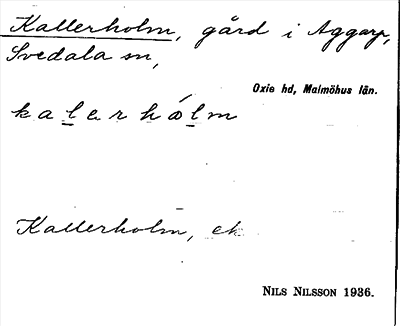 Kallerholm, gård i Aggarp,
Svedala sn,
Oxie hd, Malmöhus län.
kalerhólm
Kallerholm, ek
NILS NILSSON 1936.